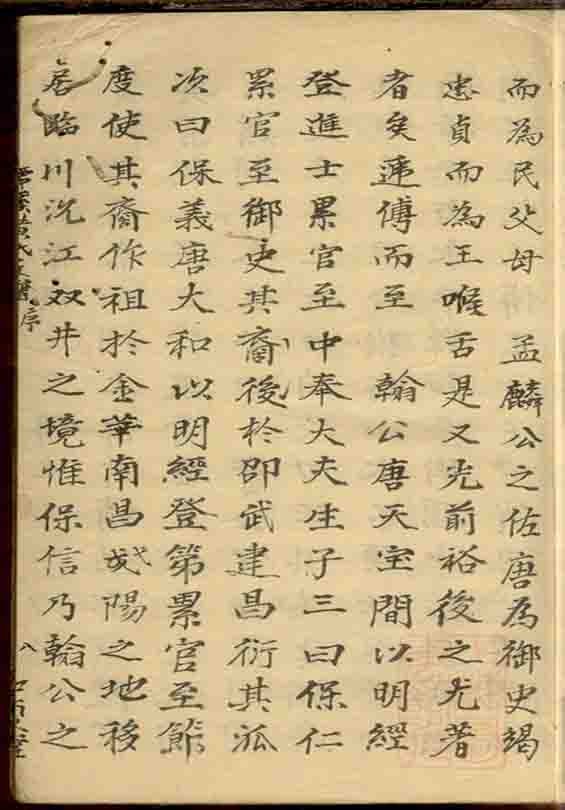 而為民父母　孟麟公之佐唐為御史竭
忠貞而為王喉舌是又光前裕後之尤著
者矣遞傳而至　翰公唐天宝間以明經
登進士累官至中奉大夫生子三曰保仁
累官至御史其裔後於邵武建昌衍其派
次曰保義唐大和以明經登第累官至節
度使其裔作祖於金華南昌弋陽之地移
居臨川沉江双井之境惟保信乃翰公之
序
八